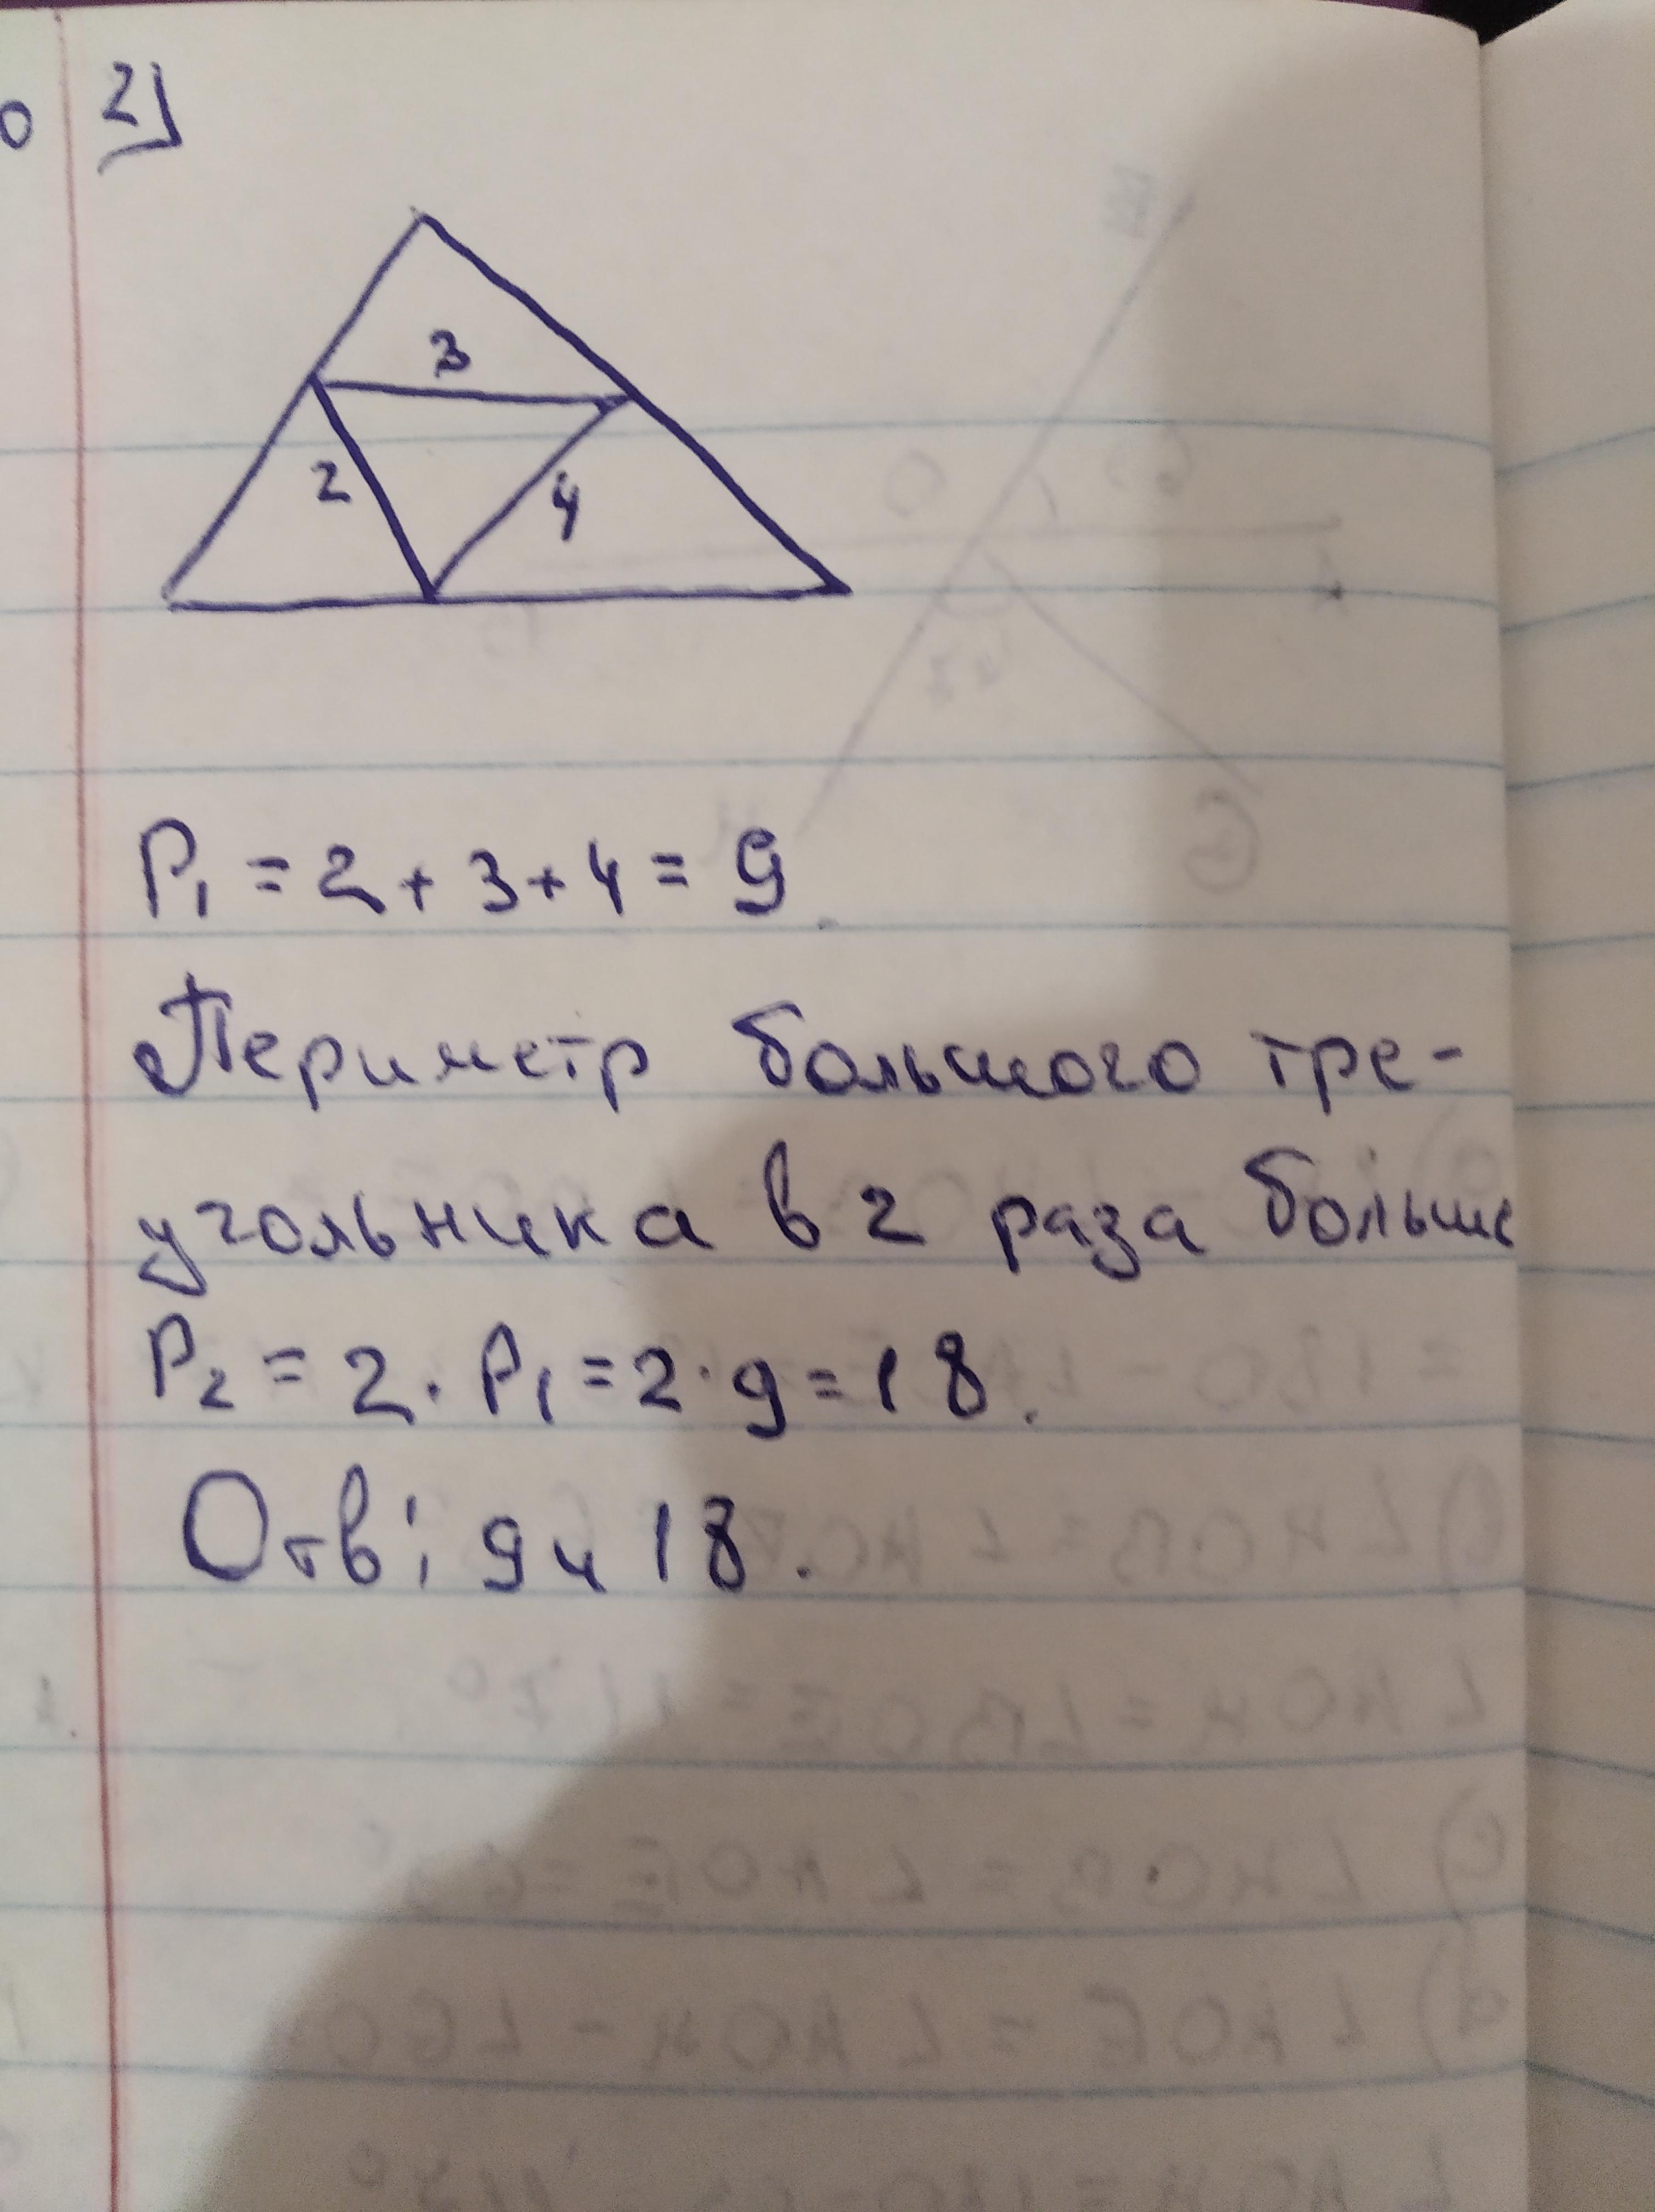 2)
3
2
4
P₁ = 2 + 3 + 4 = 9.
Периметр большого тре-
угольника в 2 раза больше
P₂ = 2 · P₁ = 2 · 9 = 18.
Отв: 9 и 18.